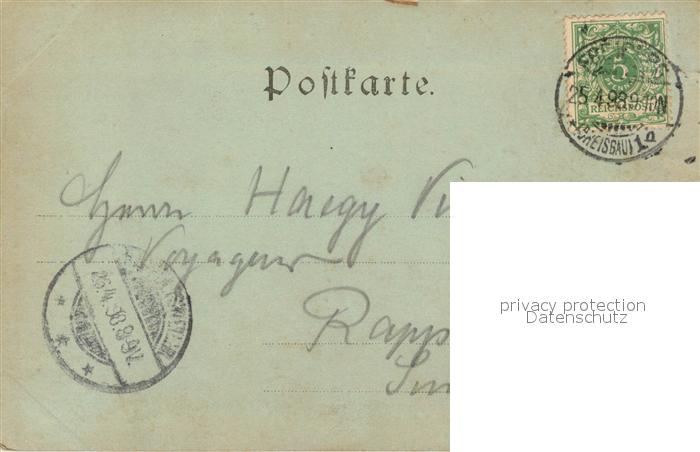 Postkarte.
5
REICHSPOST
FREIBURG
25.4.98.9-10N
(BREISGAU)
Herrn Haegy Vi
Voyageur
Rapp
26.4.98.8-9V.
privacy protection
Datenschutz